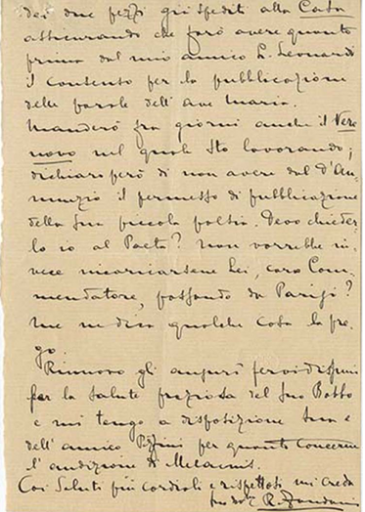 dei due pezzi già spediti alla Casa
assicurando che farò avere quanto
prima dal mio amico L. Leonardi
il consenso per la pubblicazione
delle parole dell'Ave Maria.
Manderò fra giorni anche il Vere
novo nel quale sto lavorando;
dichiaro però di non avere dal D'An-
nunzio il permesso di pubblicazione
della sua piccola poesia. Devo chieder-
lo io al Poeta? Non vorrebbe in-
vece incaricarsene Lei, caro Com-
mendatore, passando da Parigi?
Me ne dica qualche cosa la pre-
go.
Rinnovo gli auguri fervidissimi
per la salute preziosa del suo Bobbo
e mi tengo a disposizione sua e
dell'amico Pizzini per quanto concerne
l'audizione di Melaenis.
Coi saluti più cordiali e rispettosi mi creda
suo dev. R. Zandonai